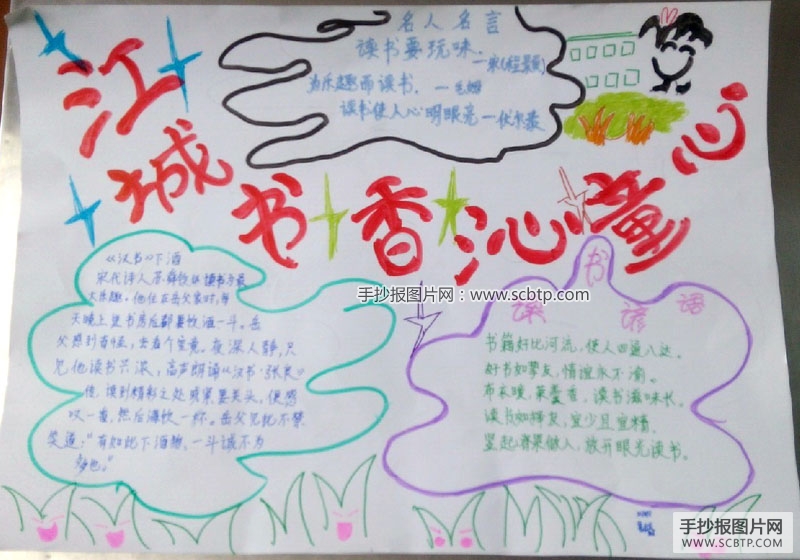 名人名言
读书要玩味。
—宋(程景颢)
为乐趣而读书。—毛姆
读书使人心明眼亮—伏尔泰
江城书香沁童心
《汉书》下酒
宋代诗人苏舜钦以读书为最
大乐趣。他住在岳父家时，每
天晚上里书房后都要饮酒一斗。岳
父感到奇怪，去看个究竟。夜深人静，只
见他读书兴浓，高声朗诵《汉书·张良》
传，读到精彩之处频频点头，便感
叹一番，然后满饮一杯。岳父见此不禁
笑道："有如此下酒物，一斗诚不为
多也。"
手抄报图片网：www.scbtp.com
书
读 谚语
书籍好比河流，使人四通八达。
好书如挚友，情谊永不渝。
布衣暖，菜羹香，读书滋味长。
读书如择友，宜少且宜精。
竖起脊梁做人，放开眼光读书。
手抄报图片网
WWW.SCBTP.COM